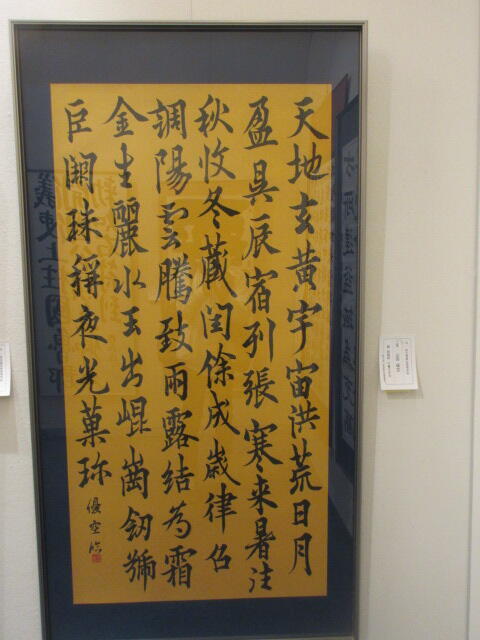 天地玄黄宇宙洪荒日月
盈昃辰宿列張寒来暑往
秋收冬蔵閏餘成歳律召
調陽雲騰致雨露結為霜
金生麗水玉出崐崗釼號
巨闕珠稱夜光菓珎
優空臨